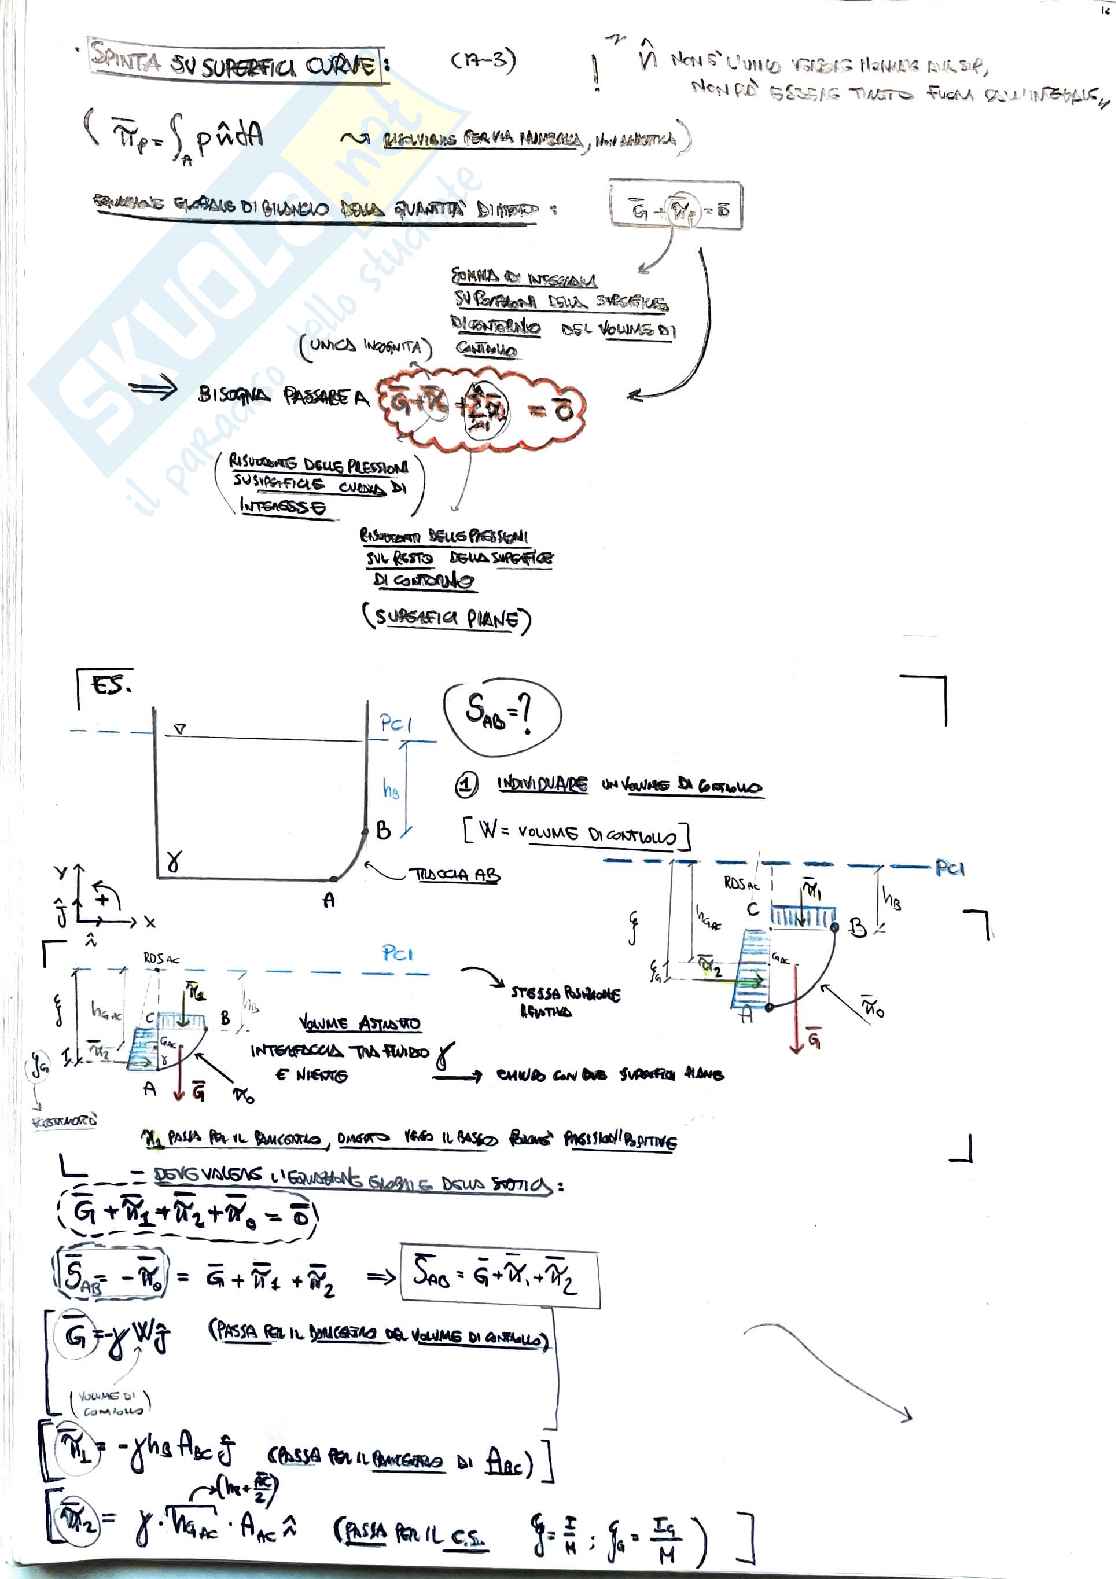 16
SPINTA SU SUPERFICI CURVE: (A-3)
! n̂ NON È L'UNICO VERSORE NORMALE ALLA SUP,
NON PUÒ ESSERE TIRATO FUORI DALL'INTEGRALE
( π̄p = ∫A p n̂ dA ⇝ RISOLVIBILE PER VIA NUMERICA, NON ANALITICA )
EQUAZIONE GLOBALE DI BILANCIO DELLA QUANTITÀ DI MOTO: Ḡ + π̄p = 0̄
SOMMA DI INTEGRALI
SUPERFICIALI DELLA SUPERFICIE
DI CONTORNO DEL VOLUME DI
CONTROLLO
(UNICA INCOGNITA)
⇒ BISOGNA PASSARE A Ḡ + π̄0 + Σ π̄i = 0̄
(RISULTANTE DELLE PRESSIONI
SU SUPERFICIE CURVA DI
INTERESSE)
RISULTANTI DELLE PRESSIONI
SUL RESTO DELLA SUPERFICIE
DI CONTORNO
(SUPERFICI PIANE)
ES.
S̄AB = ?
PCI
hB
B
γ
A
TRACCIA AB
① INDIVIDUARE UN VOLUME DI CONTROLLO
[ W = VOLUME DI CONTROLLO ]
y
ĵ
+
x
î
PCI
RDS AC
π̄1
hB
C
B
hGAC
ξ
ξG
GAC
π̄2
A
π̄0
Ḡ
PCI
RDS AC
π̄1
hB
C
B
hGAC
ξ
ξG
GAC
γ
π̄2
A
Ḡ
π0
STESSA POSIZIONE
RELATIVA
VOLUME ASTRATTO
INTERFACCIA TRA FLUIDO γ
E NIENTE → CHIUSO CON DUE SUPERFICI PIANE
π̄1 PASSA PER IL BARICENTRO, DIRETTO VERSO IL BASSO POICHÈ PRESSIONI POSITIVE
= DEVE VALERE L'EQUAZIONE GLOBALE DELLA STATICA:
Ḡ + π̄1 + π̄2 + π̄0 = 0̄
S̄AB = -π̄0 = Ḡ + π̄1 + π̄2 ⇒ S̄AB = Ḡ + π̄1 + π̄2
[ Ḡ = -γ W ĵ (PASSA PER IL BARICENTRO DEL VOLUME DI CONTROLLO)
(VOLUME DI
CONTROLLO)
[ π̄1 = -γ hB ABC ĵ (PASSA PER IL BARICENTRO DI ABC) ]
(hB + AC/2)
[ π̄2 = γ · hGAC · AAC î (PASSA PER IL C.S. ξ = I/M ; ξG = IG/M ) ]